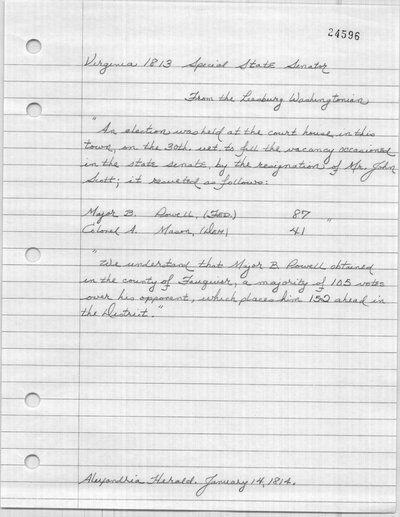 24596
Virginia 1813 Special State Senator
From the Leesburg Washingtonian
"An election was held at the court house, in this
town, on the 30th. ult. to fill the vacancy occasioned
in the state senate, by the resignation of Mr. John
Scott; it resulted as follows:
Major B. Powell, (FED.) 87 "
Colonel A. Mason, (DEM) 41
"We understand that Major B. Powell obtained
in the county of Fauquier, a majority of 105 votes
over his opponent, which places him 152 ahead in
the District."
Alexandria Herald. January 14, 1814.